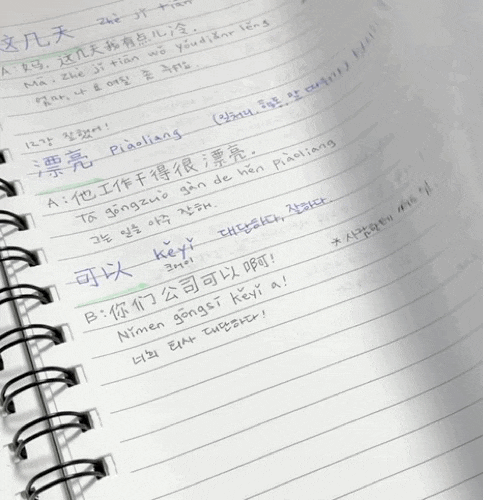 这几天 zhè jǐ tiān
A: 妈, 这几天我有点儿冷.
Mā, zhè jǐ tiān wǒ yǒudiǎnr lěng
엄마, 나 요 며칠 좀 추워요.
12강 잘했어!
漂亮 piàoliang
A: 他工作干得很漂亮.
Tā gōngzuò gàn de hěn piàoliang
그는 일을 아주 잘해.
可以 kěyǐ 대단하다, 잘하다
커이
B: 你们公司可以啊!
Nǐmen gōngsī kěyǐ a!
너희 회사 대단하다!